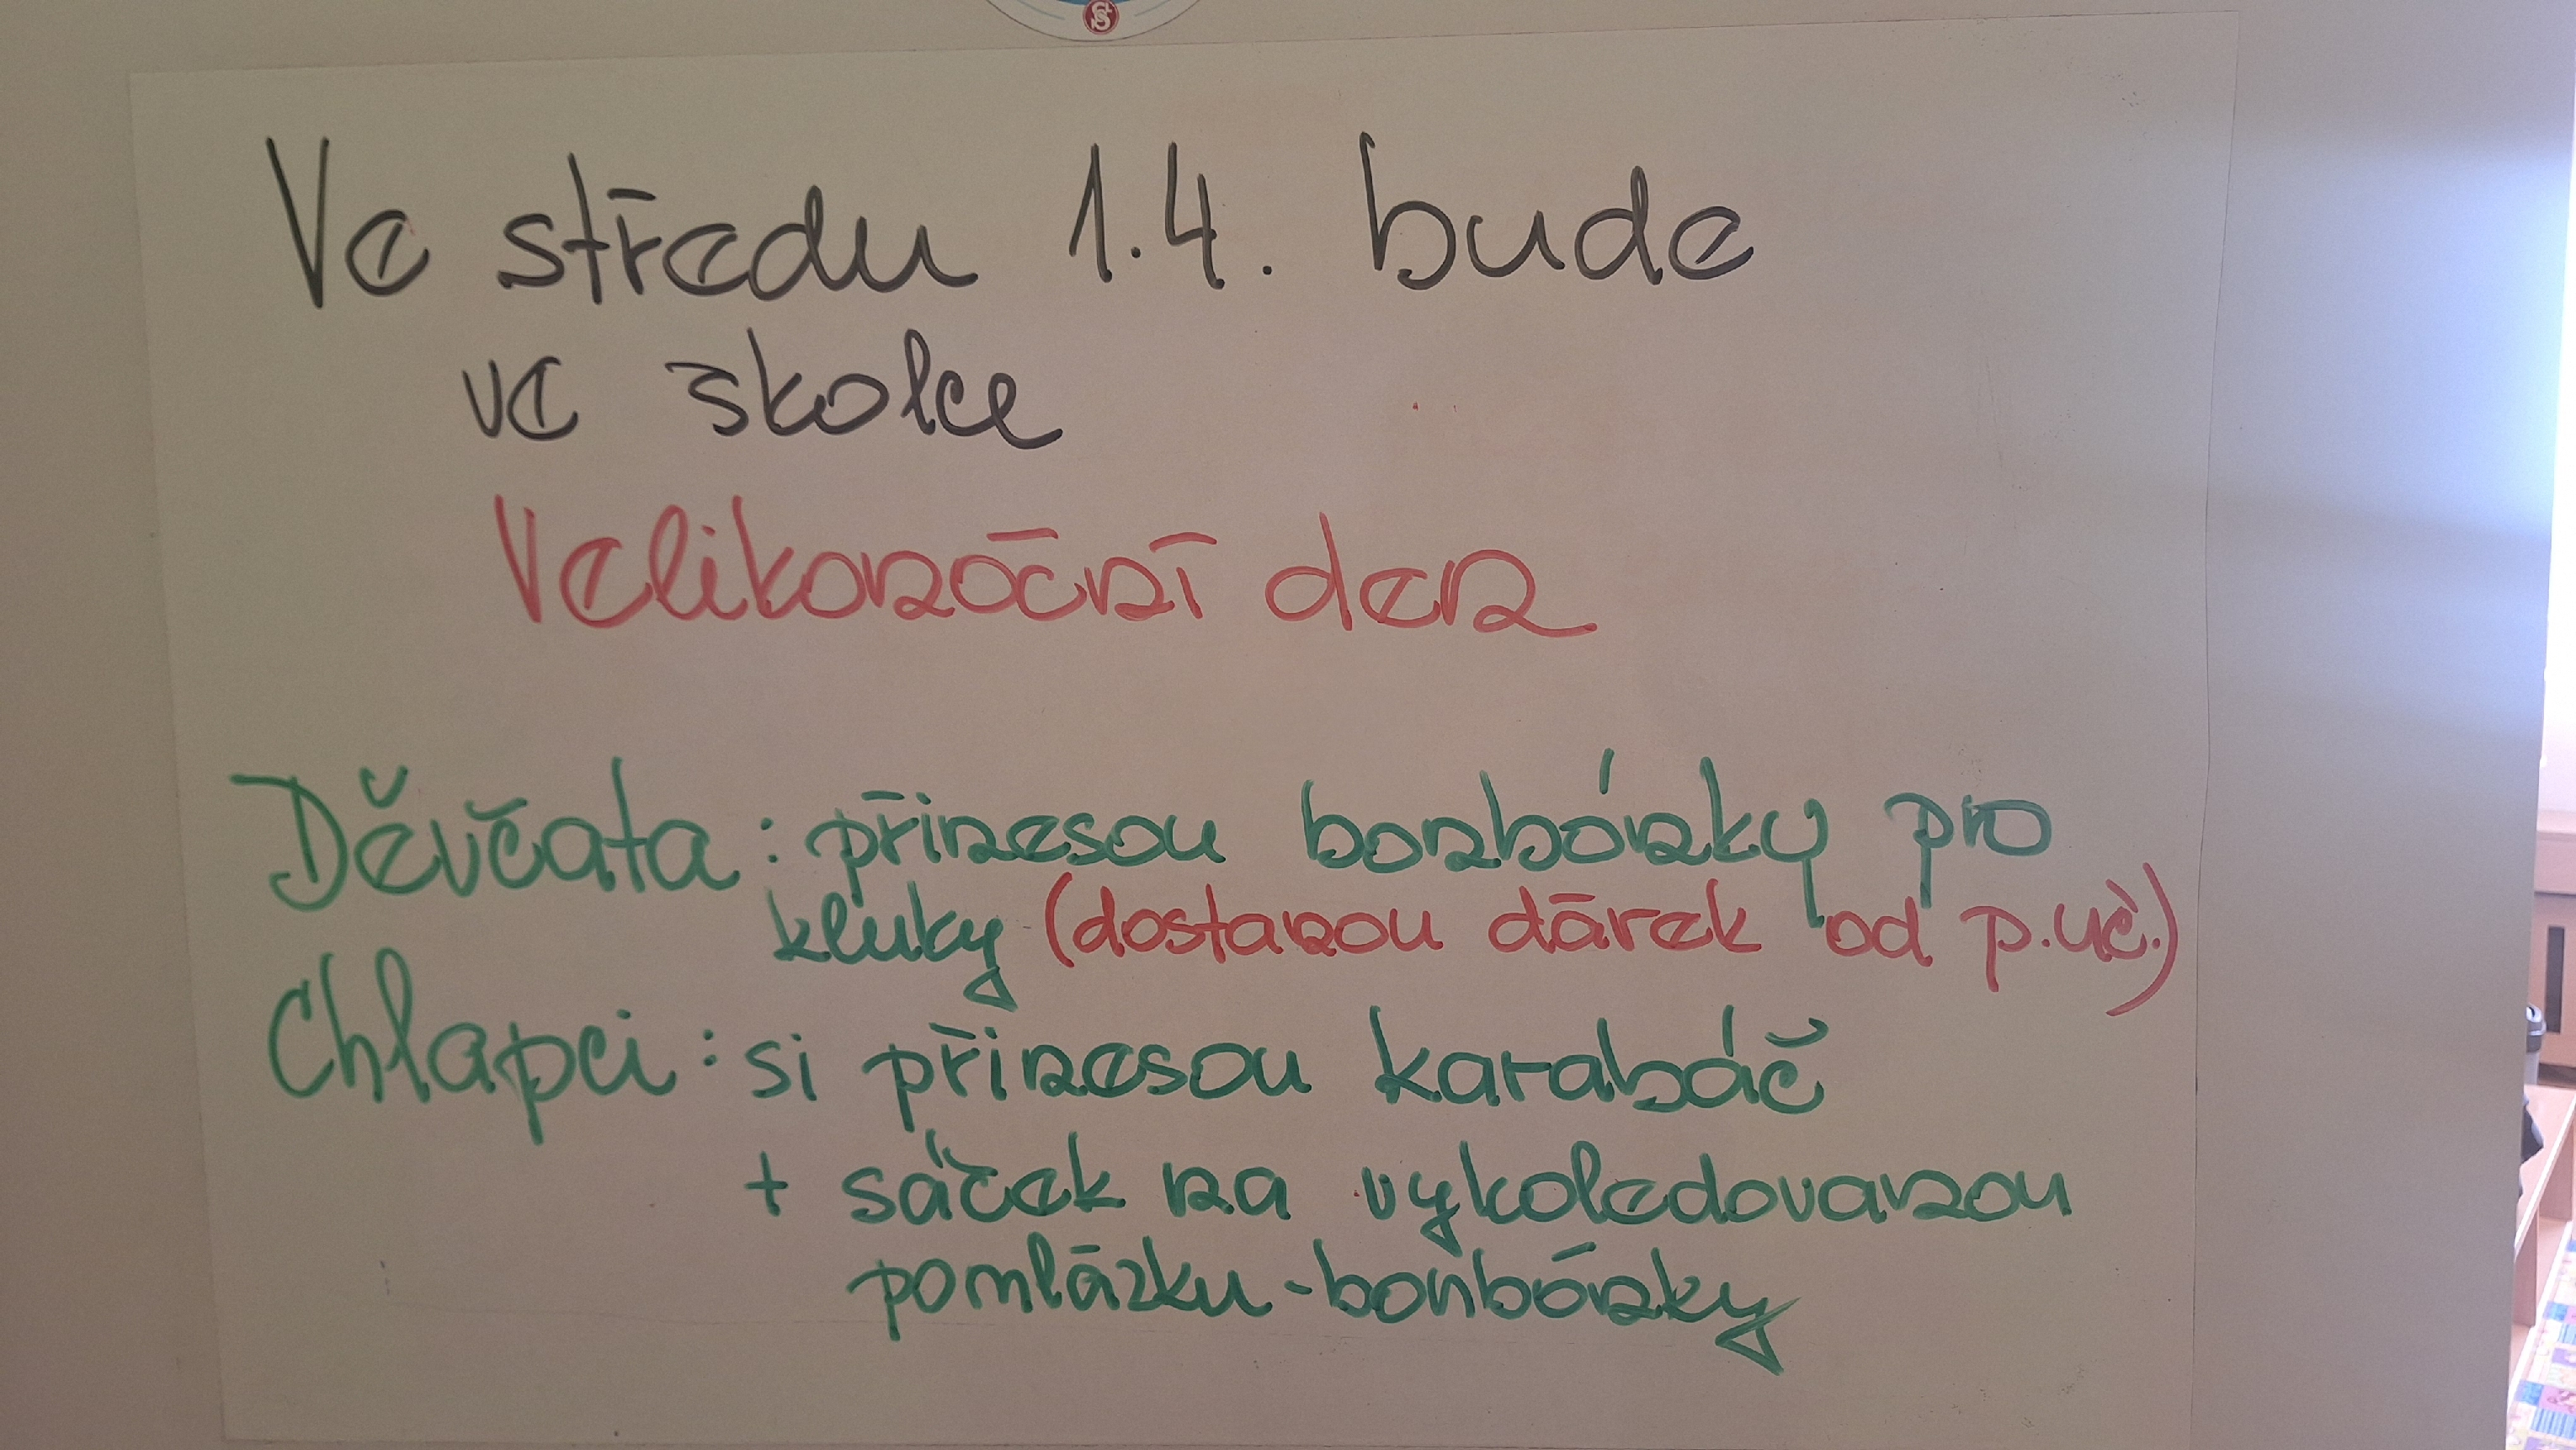 Ve středu 1.4. bude
ve školce
Velikonoční den
Děvčata: přinesou bonbónky pro
kluky (dostanou dárek od p.uč.)
Chlapci: si přinesou karabáč
+ sáček na vykoledovanou
pomlázku-bonbónky